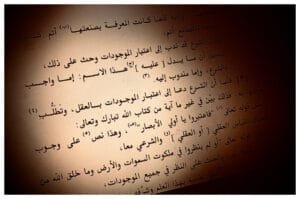 كانت المعرفة بصنعتها أتم
الشرع قد ندب إلى اعتبار الموجودات وحث على ذلك،
أن ما يدل [عليه] هذا الاسم: إما واجب
وإما مندوب إليه.
أن الشرع دعا إلى اعتبار الموجودات بالعقل، وتطلب
بين في غير ما آية من كتاب الله تبارك وتعالى:
تعالى "فاعتبروا يا أولي الأبصار"، وهذا نص على وجوب
العقلي [أو العقلي] والشرعي معا.
تعالى أو لم ينظروا في ملكوت السموات والأرض وما خلق الله من
على النظر في جميع الموجودات،
بهذا العلم